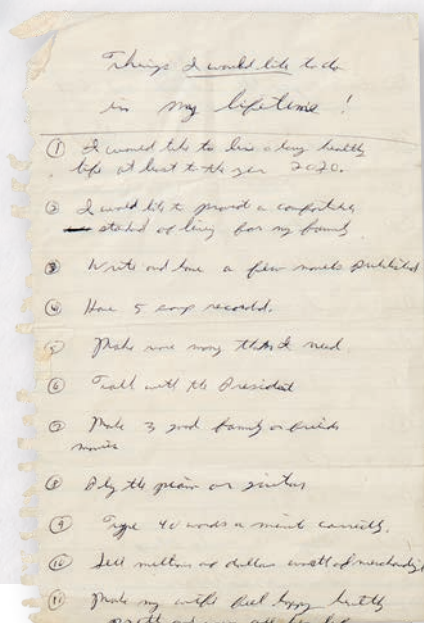 Things I would like to do
in my lifetime!
① I would like to live a long healthy
life at least to the year 2020.
② I would like to provid a comfortable
standard of living for my family
③ Write and have a few novels published
④ Have 5 songs recorded.
⑤ Make more money than I need.
⑥ Talk with the President
⑦ Make 3 good family or friends
movies
⑧ Play the piano or guitar
⑨ Type 40 words a minute correctly.
⑩ Sell millions of dollars worth of merchandise
⑪ Make my wife feel happy healthy
pretty and